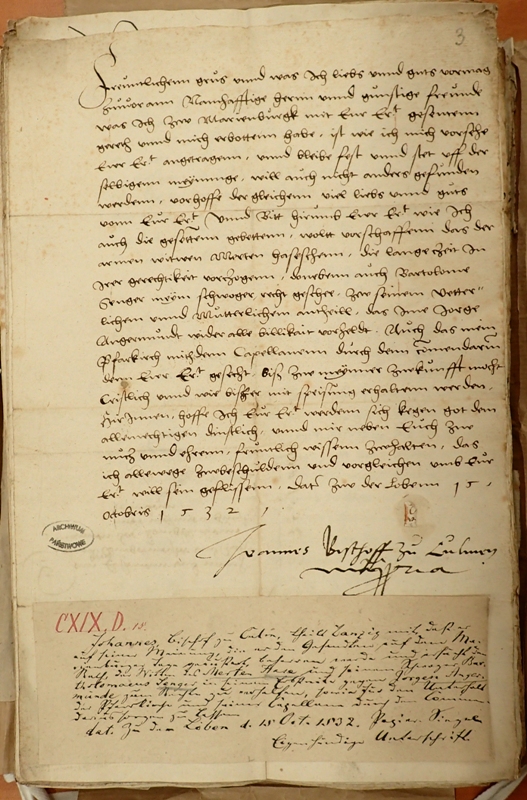 3
Freuntlichenn grus unnd was Ich liebs unnd guts vormag
zuuor ann Namhafftige herrn unnd gunstige freunde
was Ich zcw Marienburgk mit Eur Ert gesentenn
geredt unnd mich erbottenn habe, ist wie ich mich vorsehe
Eurr Ert angetragenn, unnd bleibe fest unnd stet uff der
selbigenn meynunge, will auch nicht anders gefunden
werdenn, vorhoffe der gleichenn viel liebs unnd guts
vonn Eur Ert Unnd Bitt hirumb Eurr Ert wie Ich
auch die gesettenn gebettenn, wolt vorschaffenn das der
armen witwen Merten haseschenn, die lange zeit In
Irer gerechtikeit vorzogenn, donebenn auch Bartolome
Senger meym schwoger, recht geschee, zcw seinem Vetter
lichenn unnd Mutterlichenn antheill, das Ime Jorge
Angermundt wider alle billikait vorheldt. Auch das mein
Pfarkirch mit dem Capellanenn durch denn Comendarim
denn Eurr Ert gesetzt biß zcw meynner zcukunfft mocht
Cristlich unnd wie bißher mit speisung erhaltenn werden.
HirInnen, hoffe Ich Eur Ert werdenn sich kegen got dem
allmechtigen dinstlich, unnd mir neben Euch zcw
nutz und ehrenn, freuntlich wissenn zcuhalten, das
ich allewege zcwbeschuldenn und vorgleichen umb Eur
Ert will sein geflissenn, Datz zcw der Lobenn 15,
octobris 1532,
Joannes Bischoff zu Culmen
ARCHIWUM
PAŃSTWOWE
CXIX, D. 18.
Johannes, Bischof zu Culm, theilt Danzig mit, daß er
auf seiner Meinung, die er den Gesandten auf dem Ma-
rienburg
Rath, der Wittwe d. Merten Hase und seinem Schwager Bar-
tholomaeus Senger gegen Jorgen Anger-
münde zum Rechte zu verhelfen, sowie für den Unterhalt
der Pfarrkirche und seiner Capellane durch den Commen-
darius sorgen zu lassen.
dat. Zu der Löben d. 15 Oct. 1532. Papier. Siegel
Eigenhändige Unterschrift.